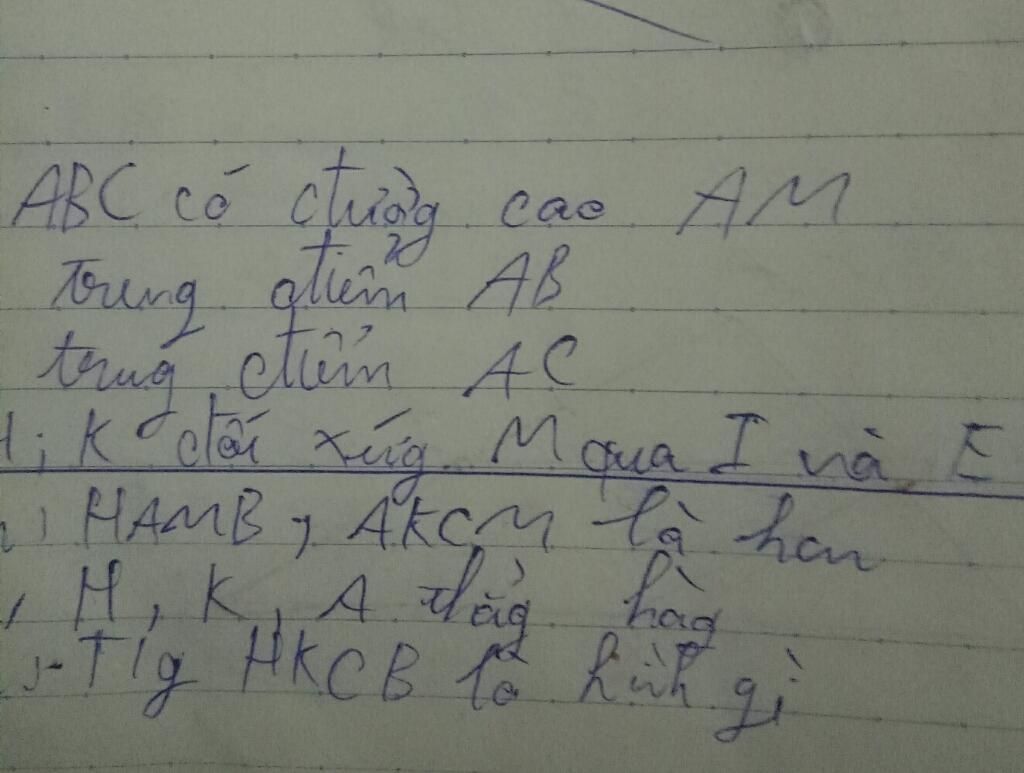 ABC có đường cao AM
trung điểm AB
trung điểm AC
H; K đối xứng M qua I và E
, HAMB, AKCM là hcn
, H, K, A thẳng hàng
, Tg HKCB là hình gì